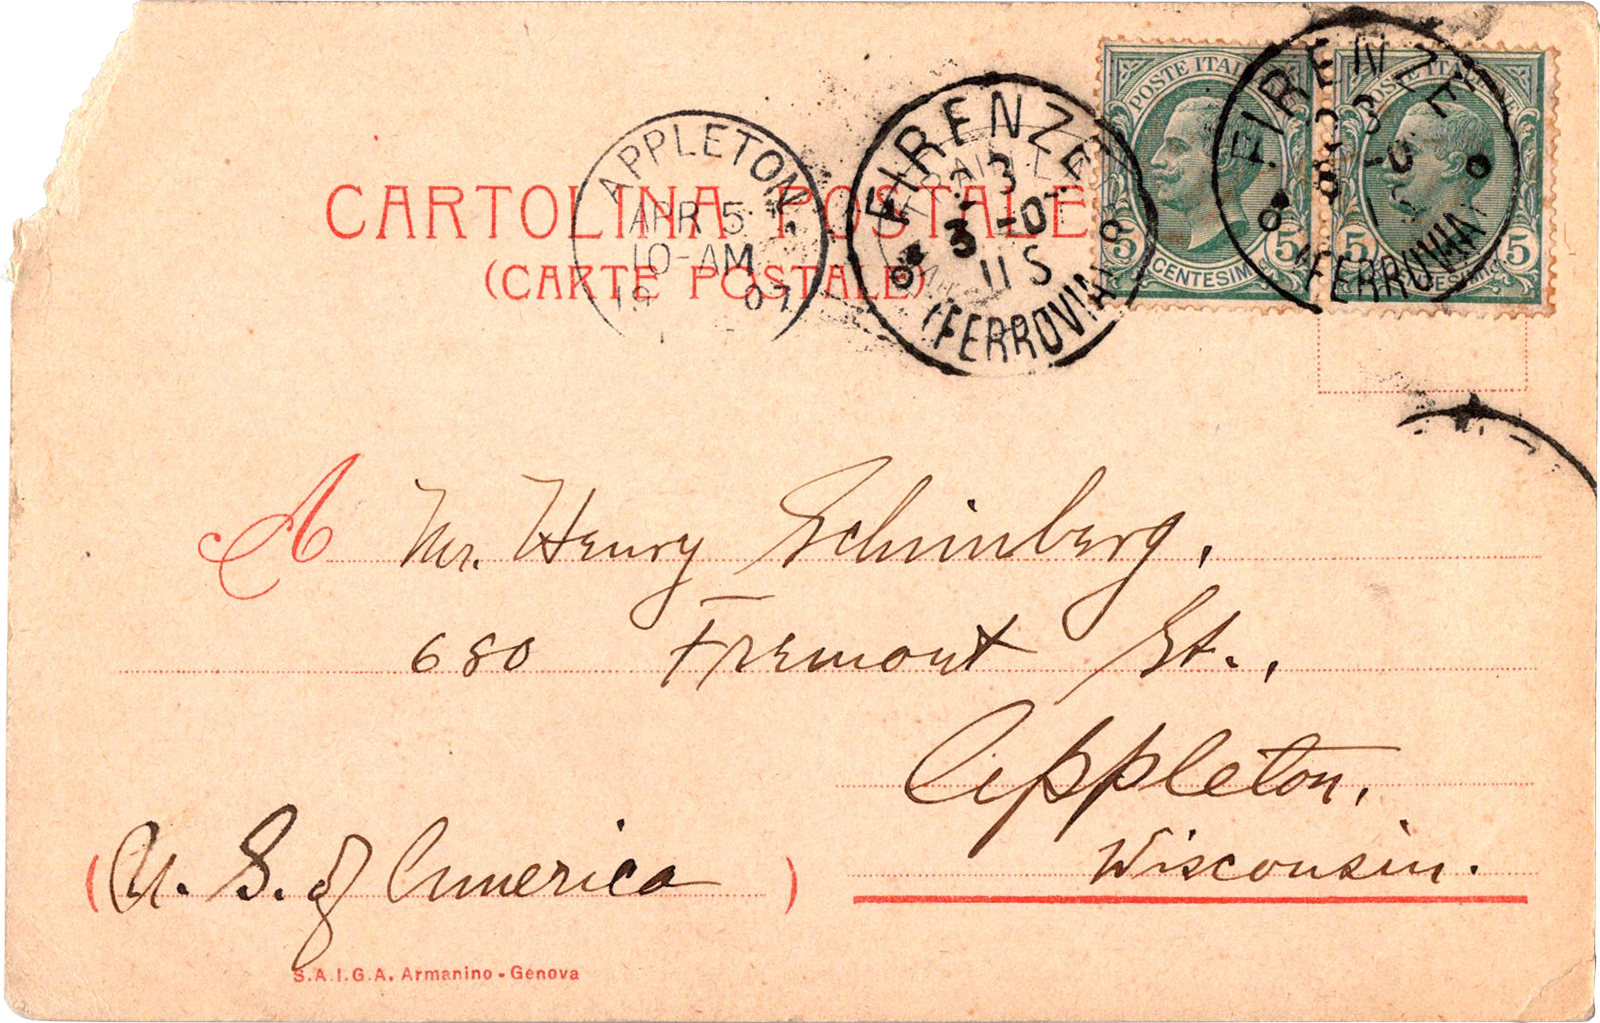 APPLETON,
APR 5
10-AM
19 07
FIRENZE
3
3 -07
11 S
(FERROVIA)
POSTE ITALIANE
5 CENTESIMI 5
FIRENZE
(FERROVIA)
5 5
CARTOLINA POSTALE
(CARTE POSTALE)
A Mr. Henry Schinberg,
680 Fremont St.,
Appleton,
Wisconsin.
(U. S. of America)
S.A.I.G.A. Armanino - Genova